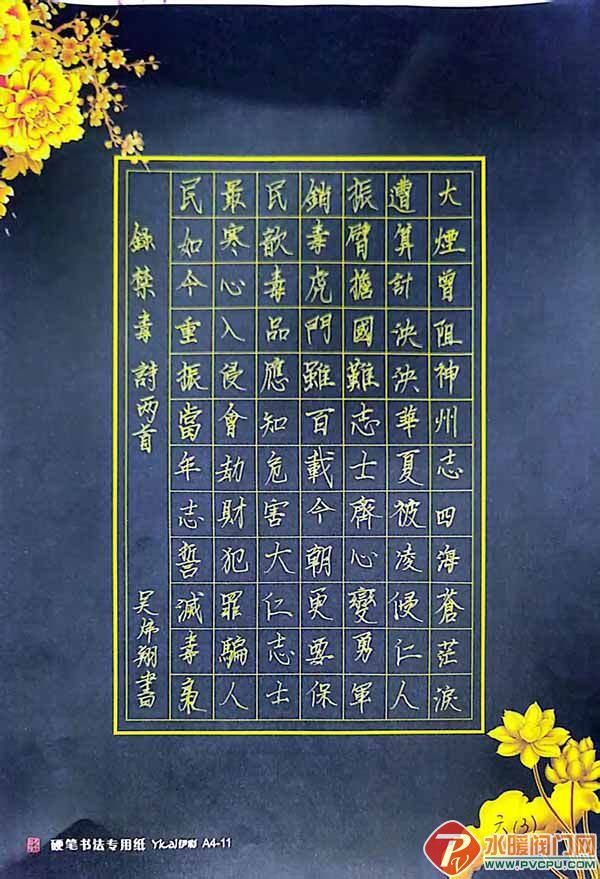 大煙曾阻神州志四海蒼茫淚
遭算計泱泱華夏被凌侵仁人
振臂擔國難志士齊心變勇軍
銷毒虎門雖百載今朝更要保
民歆毒品應知危害大仁志士
最寒心入侵會劫財犯罪騙人
民如今重振當年志誓滅毒梟
錄禁毒詩兩首
吴 翔書
六(3)
硬笔书法专用纸 Yical伊彩 A4-11
水暖阀门网
WWW.PVCPU.COM